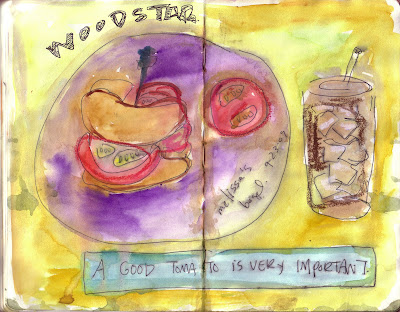 WOODSTAR
melissa's
bagel.
A GOOD TOMATO IS VERY IMPORTANT.